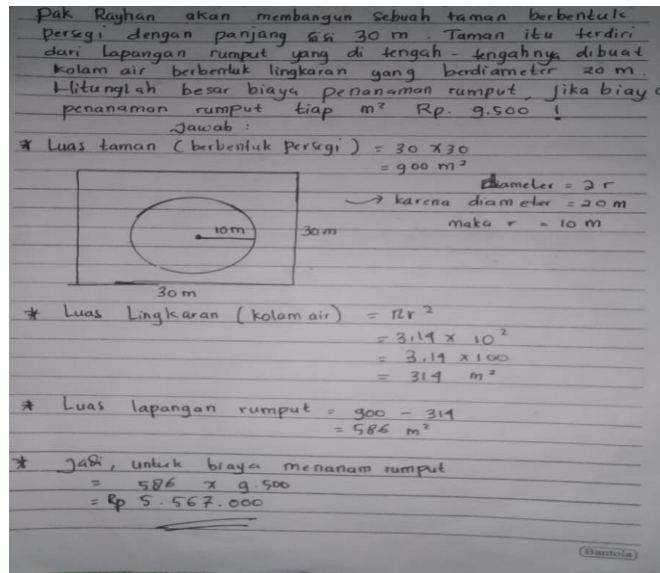 Pak Rayhan akan membangun sebuah taman berbentuk
persegi dengan panjang sisi 30 m. Taman itu terdiri
dari lapangan rumput yang di tengah-tengahnya dibuat
kolam air berbentuk lingkaran yang berdiameter 20 m.
Hitunglah besar biaya penanaman rumput, jika biaya
penanaman rumput tiap m² Rp. 9.500 !
Jawab :
* Luas taman (berbentuk persegi) = 30 x 30
= 900 m²
Diameter = 2 r
→ karena diameter = 20 m
maka r = 10 m
10 m
30 m
30 m
* Luas Lingkaran (kolam air) = πr²
= 3,14 x 10²
= 3,14 x 100
= 314 m²
* Luas lapangan rumput = 900 - 314
= 586 m²
* Jadi, untuk biaya menanam rumput
= 586 x 9.500
= Rp 5.567.000
Bantola